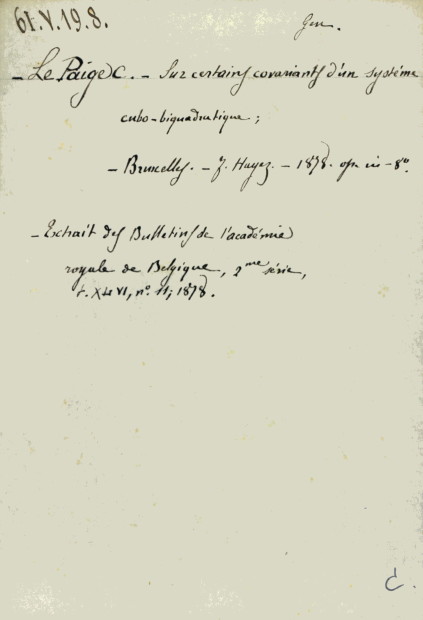 61.V.19.8.
Gen.
- Le Paige C. - Sur certains covariants d'un système
cubo-biquadratique ;
- Bruxelles. - F. Hayez. - 1878. op. in-8º.
- Extrait des Bulletins de l'académie
royale de Belgique, 2me série,
t. XLVI, nº. 11; 1878.
C.